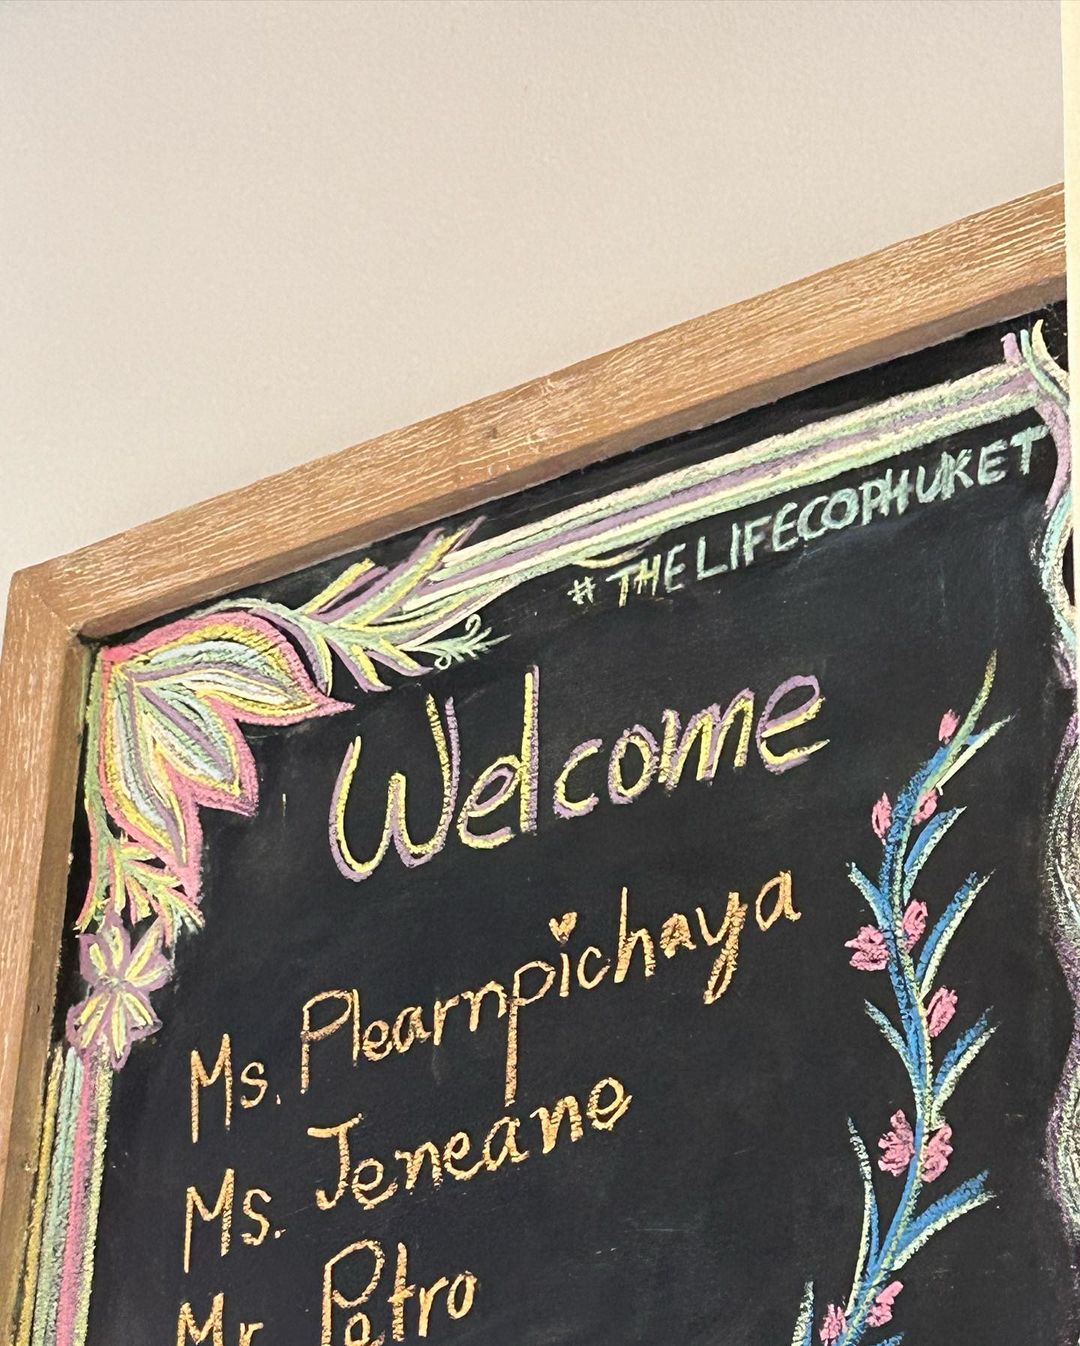 #THELIFECOPHUKET
Welcome
Ms. Plearnpichaya
Ms. Jeneane
Mr. Petro